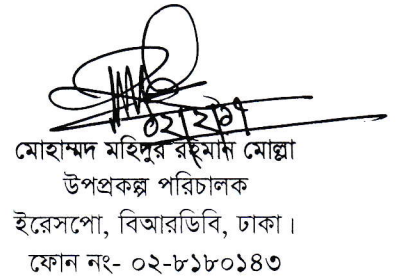 মোহাম্মদ মহিদুর রহমান মোল্লা
উপপ্রকল্প পরিচালক
ইরেসপো, বিআরডিবি, ঢাকা।
ফোন নং- ০২-৮১৮০১৪৩